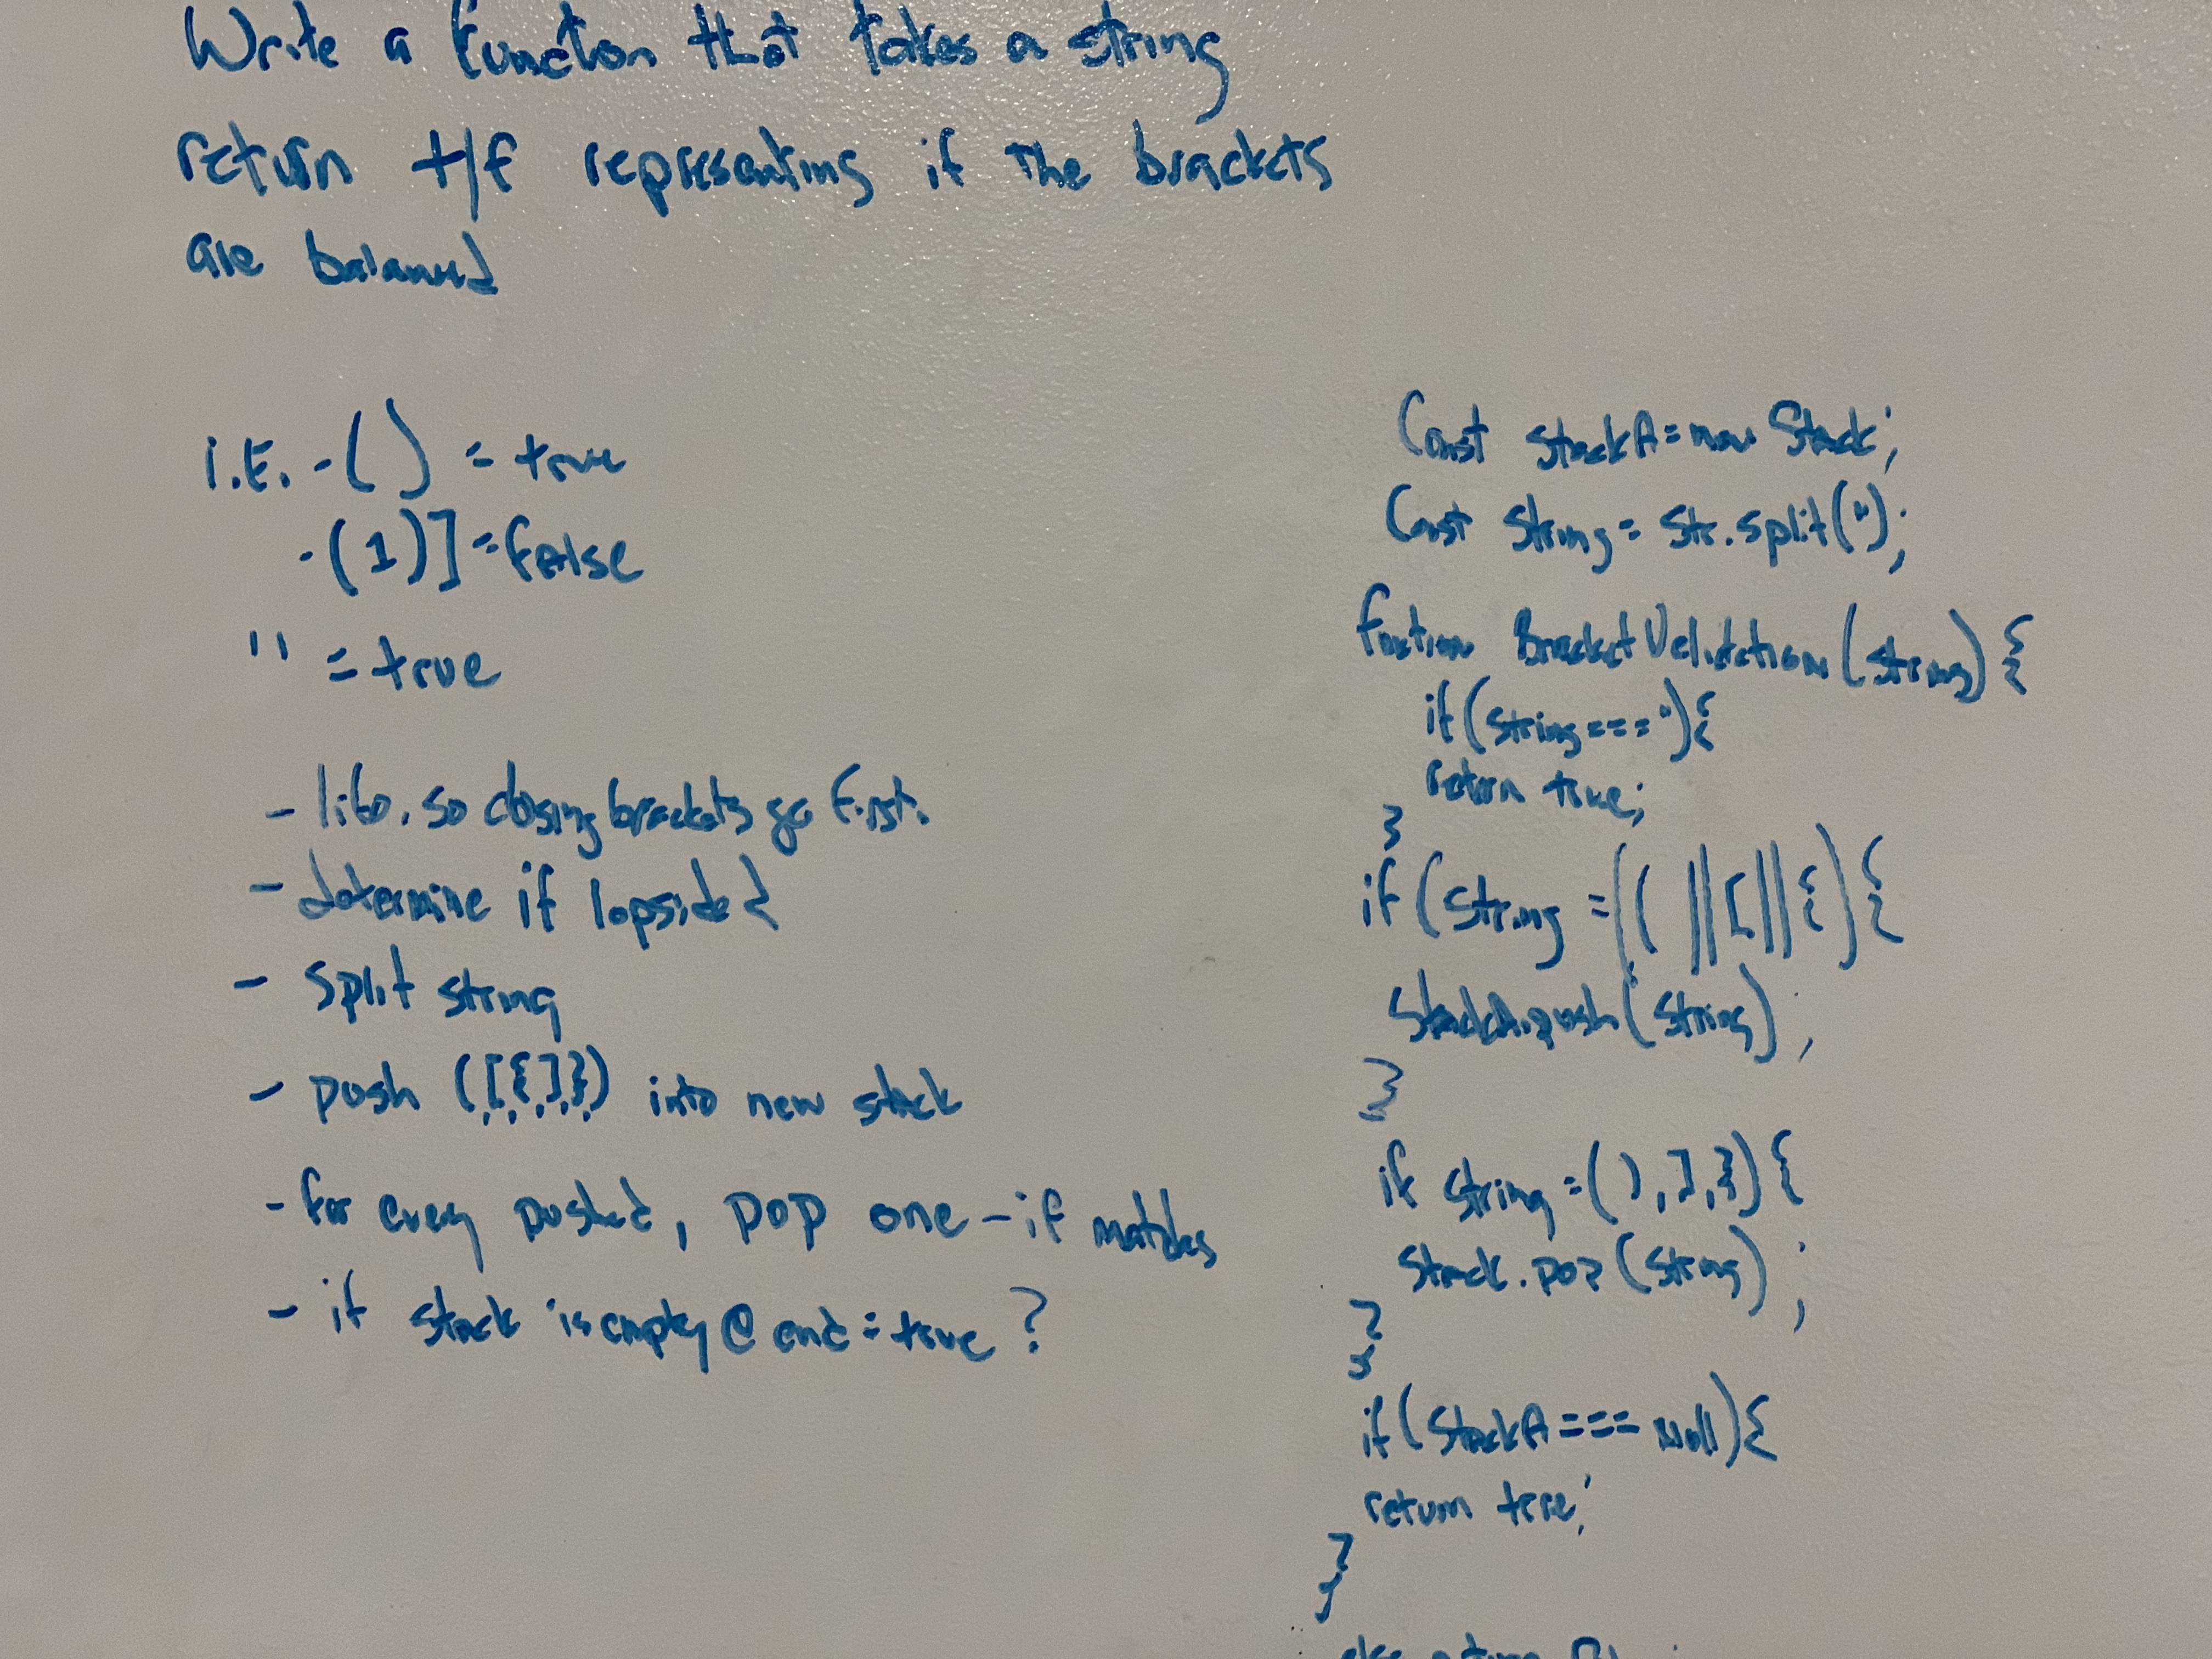 Write a function that takes a string
return t/f representing if the brackets
are balanced
i.E. -( ) = true
-(1)] = false
'' = true
- lifo. so closing brackets go first.
- determine if lopsided
- split string
- push ([{]}) into new stack
- for every pushed, pop one - if matches
- if stack is empty @ end = true?
Const StackA = new Stack;
Const String = Str.split('');
function BracketValidation(String){
if(String === ''){
return true;
}
if (String = (( || [ || {){
StackA.push(String);
}
if String = (),],}){
Stack.pop(String);
}
if(StackA === Null){
return true;
}
else return